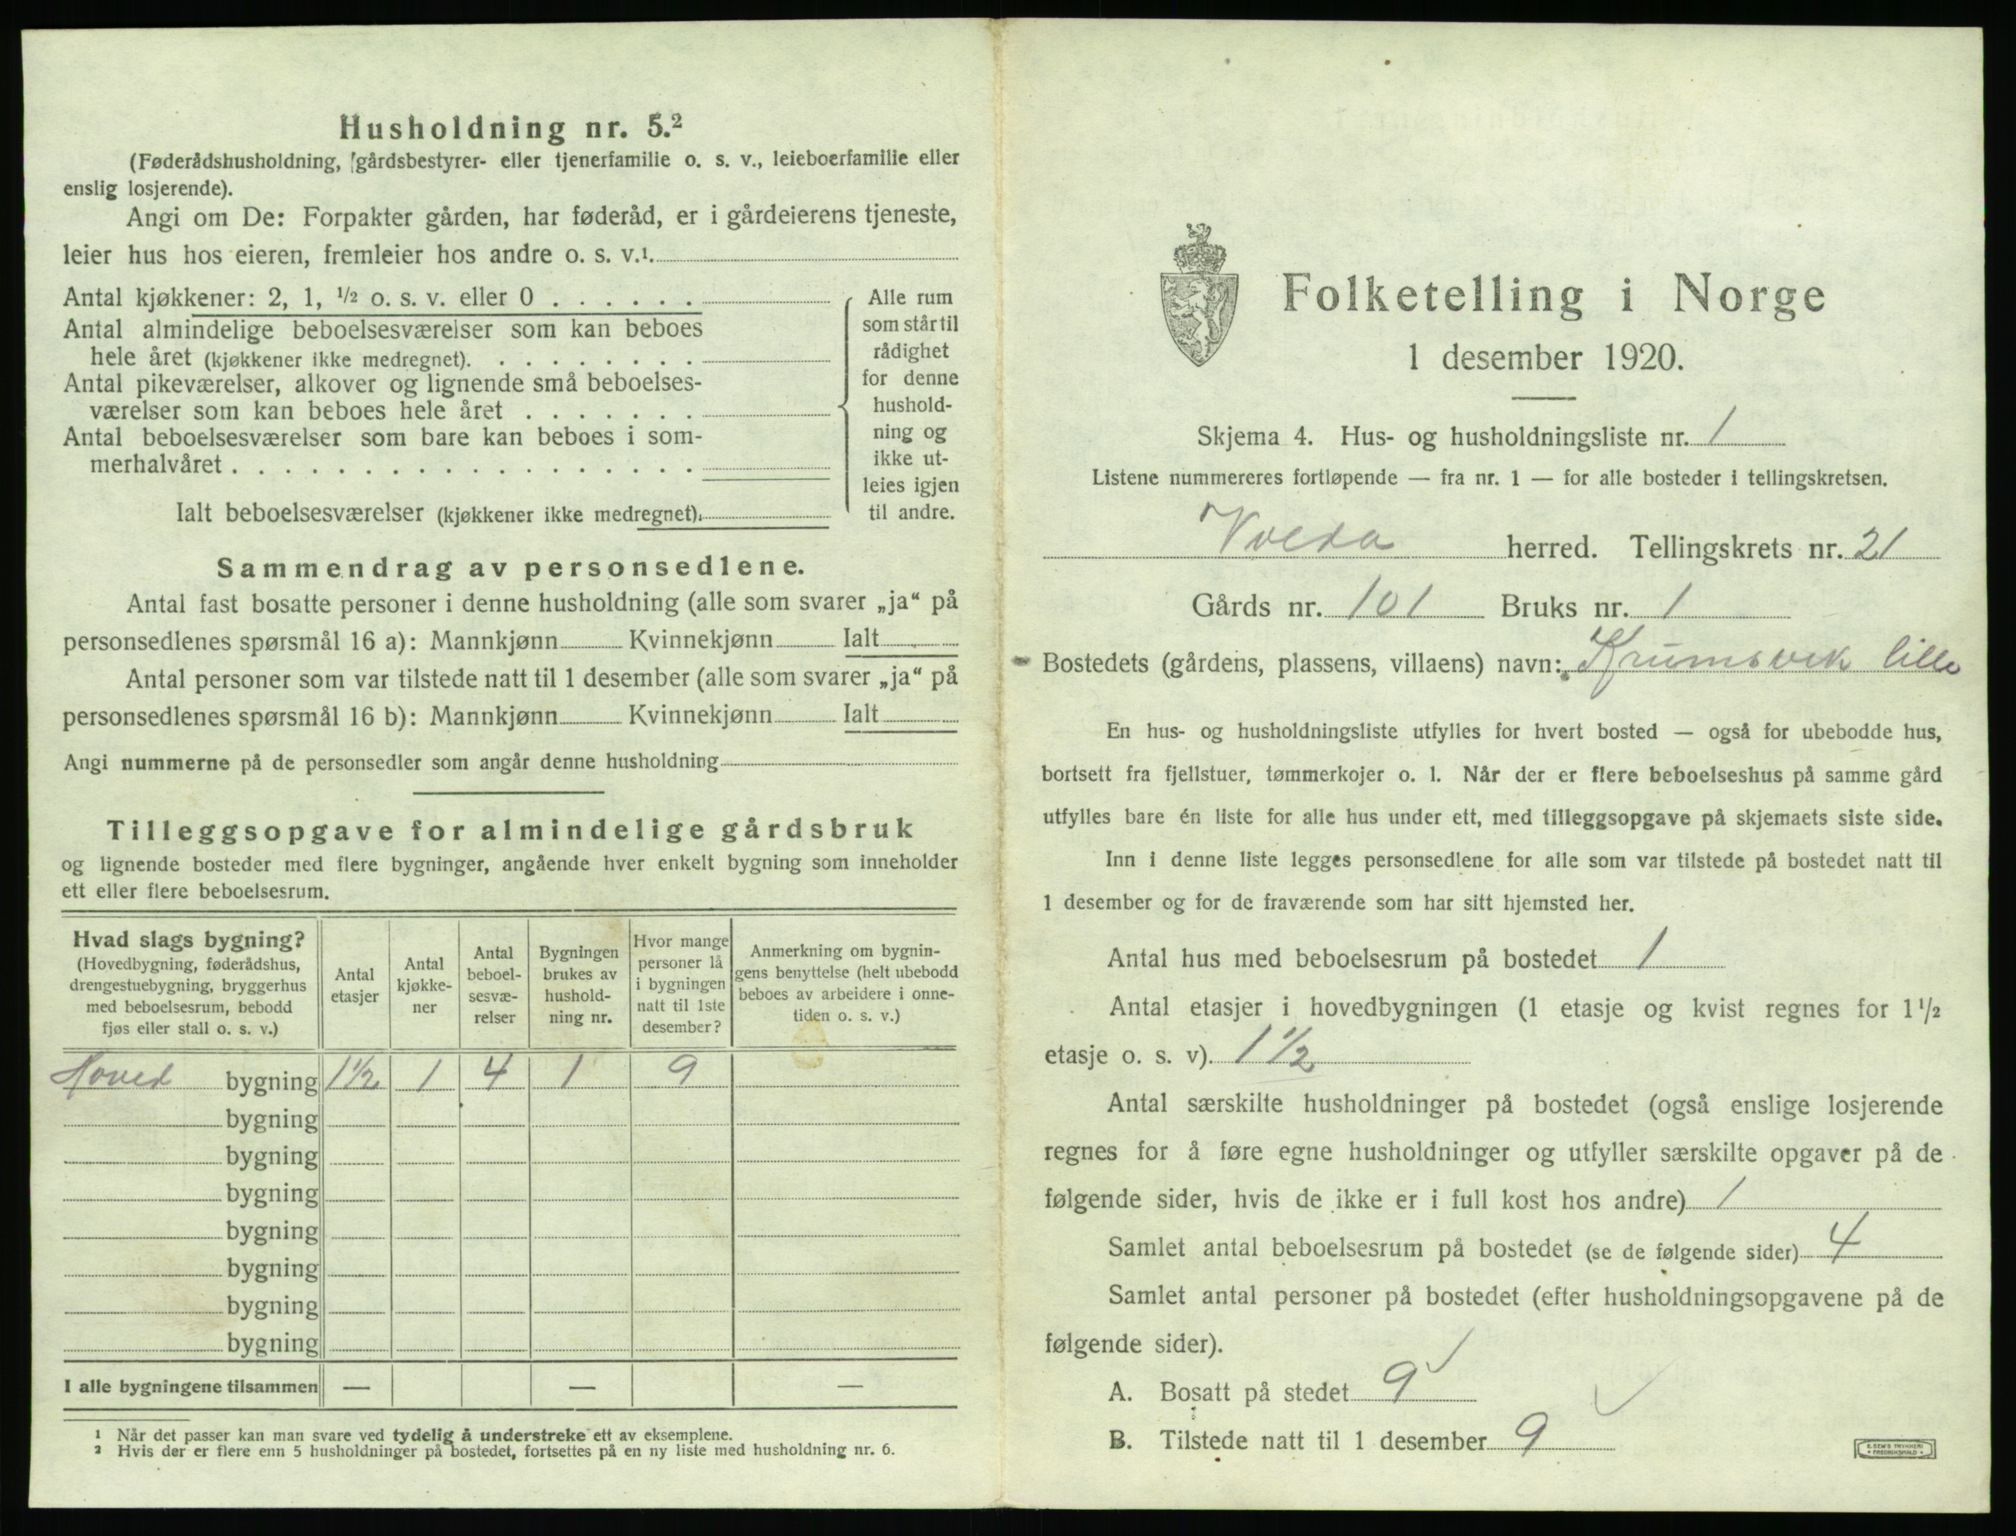 Husholdning nr. 5.²
(Føderådshusholdning, gårdsbestyrer- eller tjenerfamilie o. s. v., leieboerfamilie eller
enslig losjerende).
Angi om De: Forpakter gården, har føderåd, er i gårdeierens tjeneste,
leier hus hos eieren, fremleier hos andre o. s. v.¹
Antal kjøkkener: 2, 1, ½ o. s. v. eller 0
Antal almindelige beboelsesværelser som kan beboes
hele året (kjøkkener ikke medregnet).
Antal pikeværelser, alkover og lignende små beboelses-
værelser som kan beboes hele året
Antal beboelsesværelser som bare kan beboes i som-
merhalvåret
Ialt beboelsesværelser (kjøkkener ikke medregnet).
Alle rum
som står til
rådighet
for denne
hushold-
ning og
ikke ut-
leies igjen
til andre.
Sammendrag av personsedlene.
Antal fast bosatte personer i denne husholdning (alle som svarer „ja“ på
personsedlenes spørsmål 16 a): Mannkjønn Kvinnekjønn Ialt
Antal personer som var tilstede natt til 1 desember (alle som svarer „ja“ på
personsedlenes spørsmål 16 b): Mannkjønn Kvinnekjønn Ialt
Angi nummerne på de personsedler som angår denne husholdning
Tilleggsopgave for almindelige gårdsbruk
og lignende bosteder med flere bygninger, angående hver enkelt bygning som inneholder
ett eller flere beboelsesrum.
Hvad slags bygning?
(Hovedbygning, føderådshus,
drengestuebygning, bryggerhus
med beboelsesrum, bebodd
fjøs eller stall o. s. v.)
Antal
etasjer
Antal
kjøkke-
ner
Antal
beboel-
sesvæ-
relser
Bygningen
brukes av
hushold-
ning nr.
Hvor mange
personer lå
i bygningen
natt til 1ste
desember?
Anmerkning om bygnin-
gens benyttelse (helt ubebodd
beboes av arbeidere i onne-
tiden o. s. v.)
Hoved bygning 1½ 1 4 1 9
bygning
bygning
bygning
bygning
bygning
bygning
bygning
I alle bygningene tilsammen — — —
¹ Når det passer kan man svare ved tydelig å understreke ett av eksemplene.
² Hvis der er flere enn 5 husholdninger på bostedet, fortsettes på en ny liste med husholdning nr. 6.
Folketelling i Norge
1 desember 1920.
Skjema 4. Hus- og husholdningsliste nr. 1
Listene nummereres fortløpende — fra nr. 1 — for alle bosteder i tellingskretsen.
Volda herred. Tellingskrets nr. 21
Gårds nr. 101 Bruks nr. 1
Bostedets (gårdens, plassens, villaens) navn: Krumsvik lille
En hus- og husholdningsliste utfylles for hvert bosted — også for ubebodde hus,
bortsett fra fjellstuer, tømmerkojer o. l. Når der er flere beboelseshus på samme gård
utfylles bare én liste for alle hus under ett, med tilleggsopgave på skjemaets siste side.
Inn i denne liste legges personsedlene for alle som var tilstede på bostedet natt til
1 desember og for de fraværende som har sitt hjemsted her.
Antal hus med beboelsesrum på bostedet 1
Antal etasjer i hovedbygningen (1 etasje og kvist regnes for 1½
etasje o. s. v). 1½
Antal særskilte husholdninger på bostedet (også enslige losjerende
regnes for å føre egne husholdninger og utfyller særskilte opgaver på de
følgende sider, hvis de ikke er i full kost hos andre) 1
Samlet antal beboelsesrum på bostedet (se de følgende sider) 4
Samlet antal personer på bostedet (efter husholdningsopgavene på de
følgende sider).
A. Bosatt på stedet 9
B. Tilstede natt til 1 desember 9